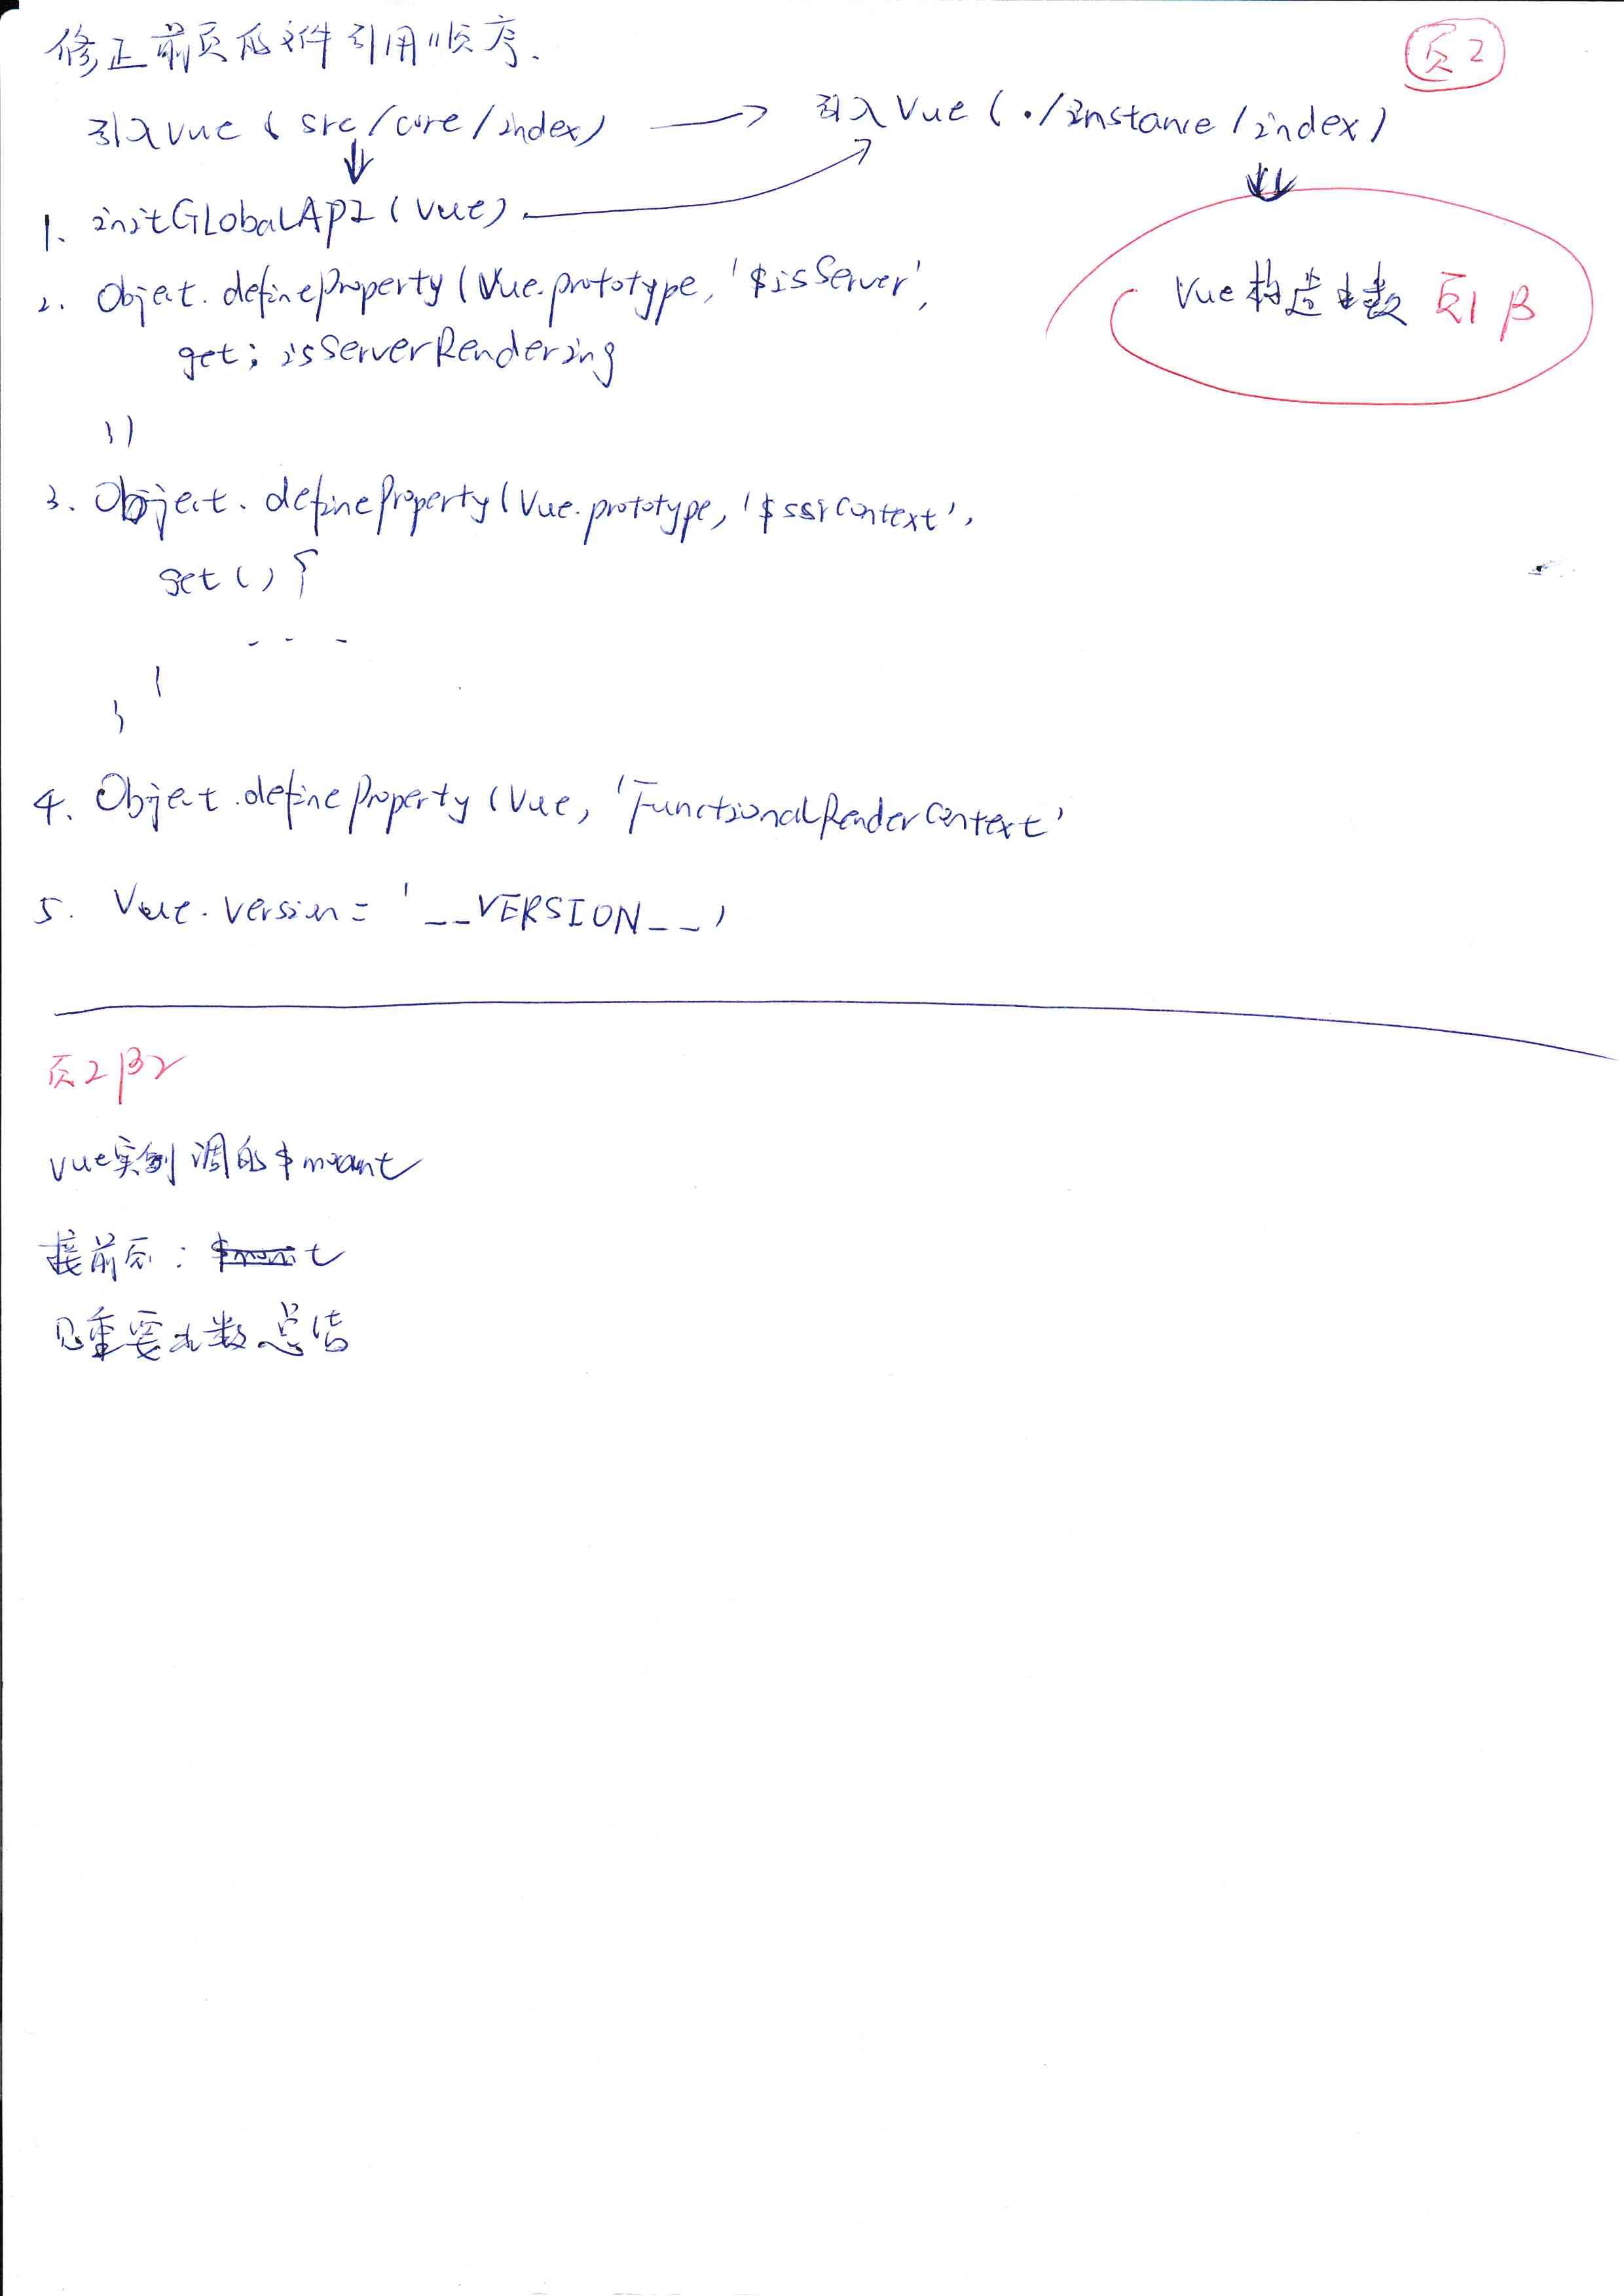 修正前页的文件引用顺序.
页2
引入Vue ( src/core/index) → 引入Vue (./instance/index)
1. initGLobalAPI (Vue)
2. Object.defineProperty (Vue.prototype, '$isServer',
get: isServerRendering
})
Vue构造函数 页1 β
3. Object.defineProperty (Vue.prototype, '$ssrContext',
get () {
- - -
}
}
4. Object.defineProperty (Vue, 'FunctionalRenderContext'
5. Vue.version = '__VERSION__'
页2 β2
vue实例调的$mount
接前页:
见重要函数总结